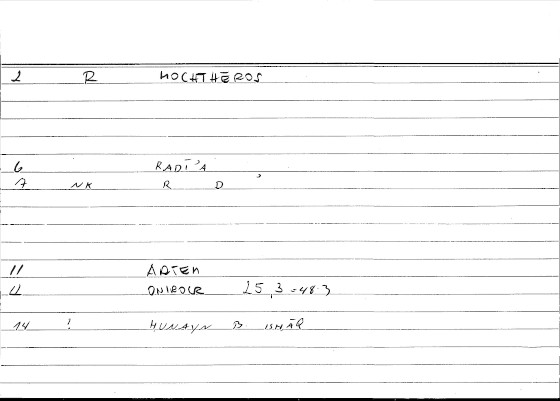 2 R MOCHTHĒROS
6 RADĪ'A
7 NK R D
11 ARTEM
12 ONIROCR 25,3 = 48.3
14 ? HUNAYN B ISHĀQ